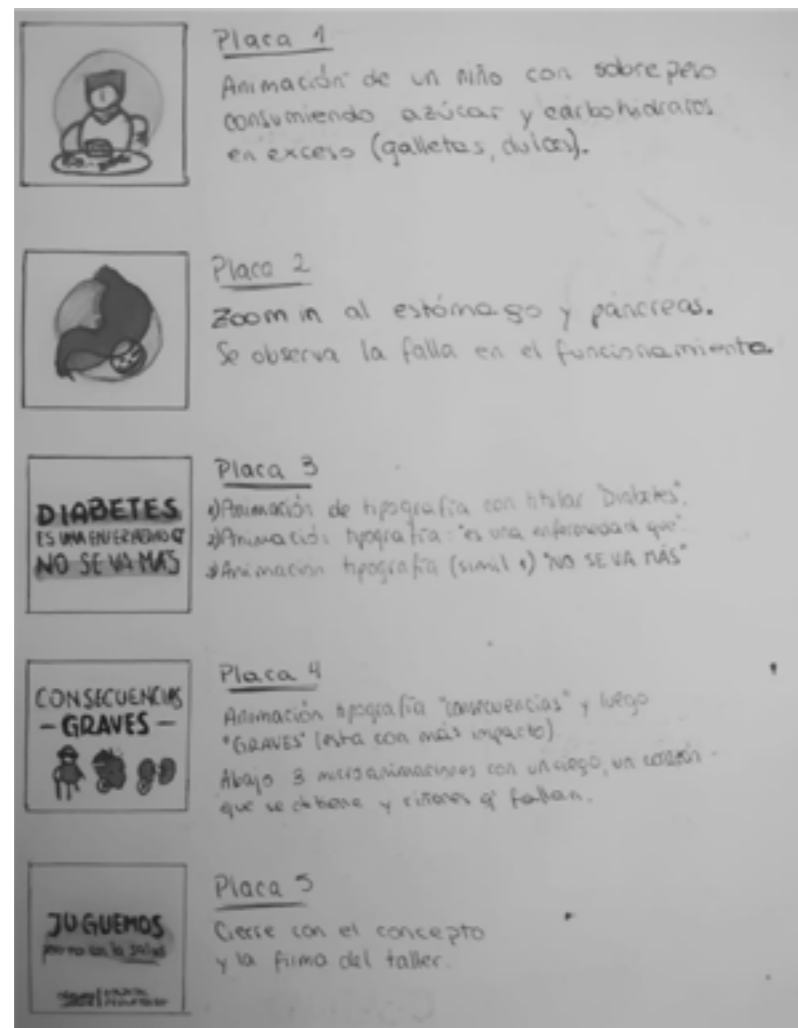 Placa 1
Animación de un niño con sobrepeso
consumiendo azúcar y carbohidratos
en exceso (galletas, dulces).
Placa 2
Zoom in al estómago y páncreas.
Se observa la falla en el funcionamiento.
DIABETES
ES UNA ENFERMEDAD Q
NO SE VA MÁS
Placa 3
1) Animación de tipografía con titular "Diabetes".
2) Animación tipografía: "es una enfermedad que"
3) Animación tipografía (simil 1) "NO SE VA MÁS"
CONSECUENCIAS
- GRAVES -
Placa 4
Animación tipografía "consecuencias" y luego
"GRAVES" (esta con más impacto)
Abajo 3 microanimaciones con un ciego, un corazón
que se detiene y riñones q' fallan.
JUGUEMOS
pero no con la salud
Placa 5
Cierre con el concepto
y la firma del taller.